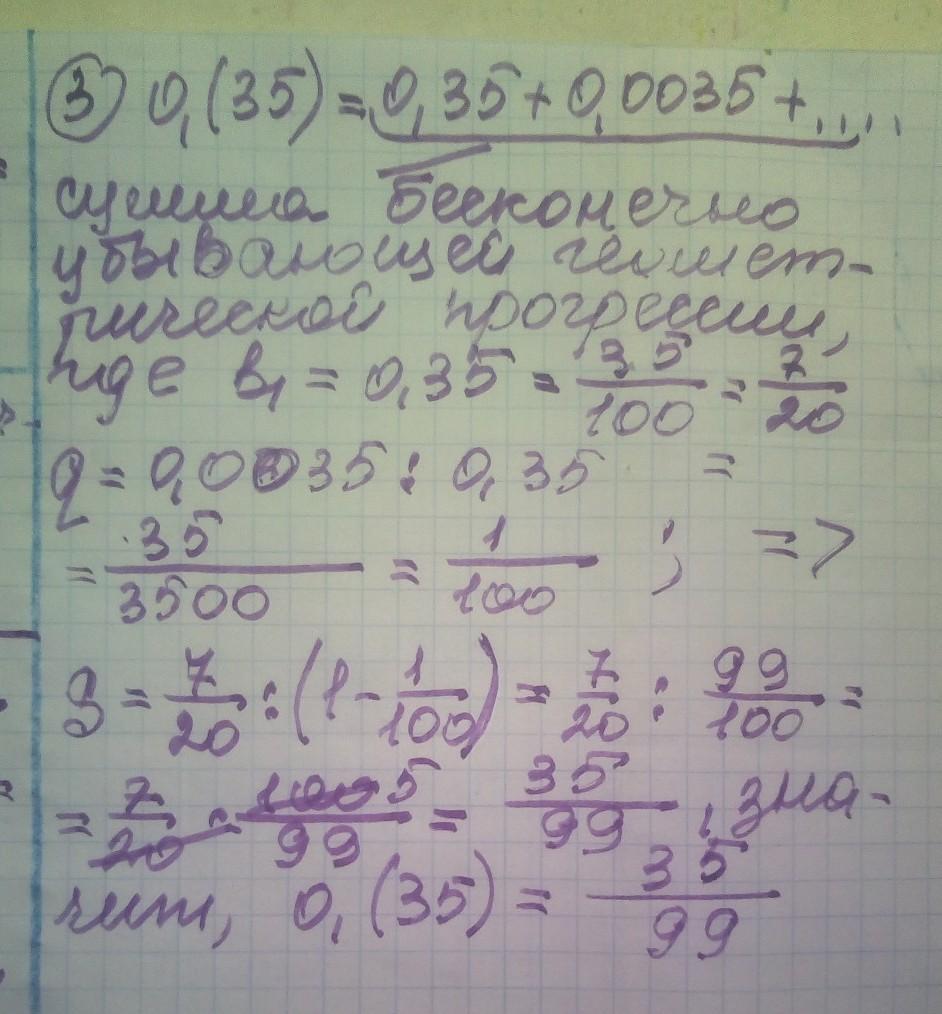 ③ 0,(35) = 0,35 + 0,0035 + ....
сумма бесконечно
убывающей геомет-
рической прогрессии,
где b₁ = 0,35 = 35/100 = 7/20
q = 0,0035 : 0,35 =
= 35/3500 = 1/100 ; =>
S = 7/20 : (1 - 1/100) = 7/20 : 99/100 =
= 7/20 · 100 5/99 = 35/99 , зна-
чит, 0,(35) = 35/99